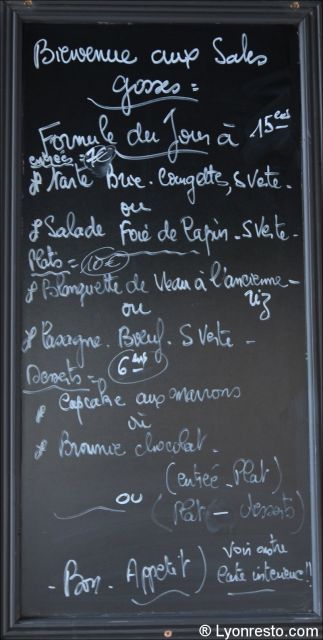 Bienvenue aux Sales
gosses =
Formule du Jour à 15 €
entrées = 7€
* Tarte Brie. Courgettes, S Verte -
ou
* Salade Foie de Lapin - S Verte -
Plats = 10€
* Blanquette de Veau à l'ancienne -
riz
ou
* Lasagne. Boeuf. S Verte -
Desserts = 6
* Cupcake aux marrons
ou
* Brownie chocolat.
(entrée - Plat)
ou
(Plat - desserts)
- Bon Appetit )
Voir notre
Carte interieure !!
® Lyonresto.com